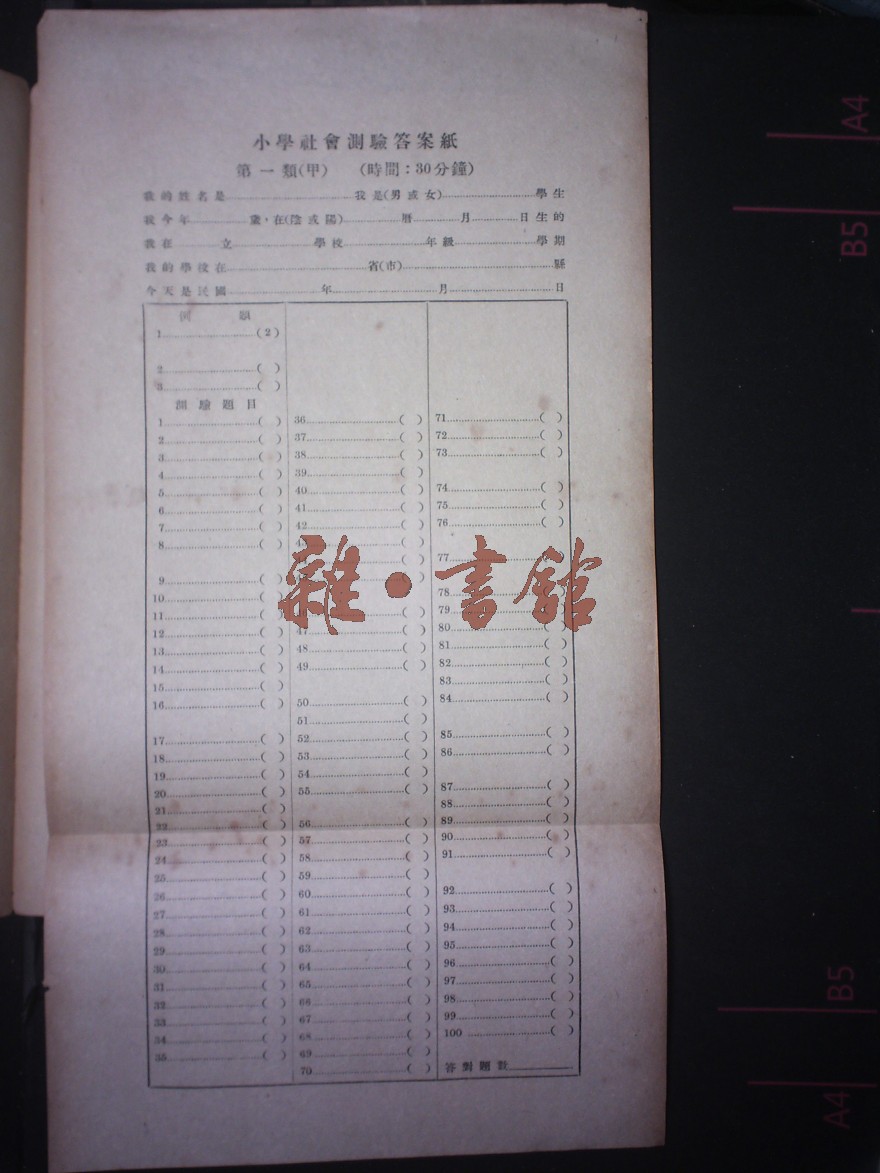 小學社會測驗答案紙
第一類(甲) (時間：30分鐘)
我的姓名是 我是(男或女) 學生
我今年 歲，在(陰或陽) 曆 月 日生的
我在 立 學校 年級 學期
我的學校在 省(市) 縣
今天是民國 年 月 日
例 題
1 (2)
2 ( )
3 ( )
測驗題目
1 ( )
2 ( )
3 ( )
4 ( )
5 ( )
6 ( )
7 ( )
8 ( )
9 ( )
10 ( )
11 ( )
12 ( )
13 ( )
14 ( )
15 ( )
16 ( )
17 ( )
18 ( )
19 ( )
20 ( )
21 ( )
22 ( )
23 ( )
24 ( )
25 ( )
26 ( )
27 ( )
28 ( )
29 ( )
30 ( )
31 ( )
32 ( )
33 ( )
34 ( )
35 ( )
36 ( )
37 ( )
38 ( )
39 ( )
40 ( )
41 ( )
42 ( )
43 ( )
47 ( )
48 ( )
49 ( )
50 ( )
51 ( )
52 ( )
53 ( )
54 ( )
55 ( )
56 ( )
57 ( )
58 ( )
59 ( )
60 ( )
61 ( )
62 ( )
63 ( )
64 ( )
65 ( )
66 ( )
67 ( )
68 ( )
69 ( )
70 ( )
71 ( )
72 ( )
73 ( )
74 ( )
75 ( )
76 ( )
77 ( )
78 ( )
79 ( )
80 ( )
81 ( )
82 ( )
83 ( )
84 ( )
85 ( )
86 ( )
87 ( )
88 ( )
89 ( )
90 ( )
91 ( )
92 ( )
93 ( )
94 ( )
95 ( )
96 ( )
97 ( )
98 ( )
99 ( )
100 ( )
答對題數
雜·書館
A4
B5
B5
A4